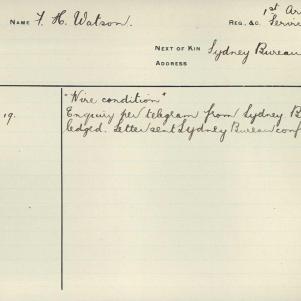 NAME F. H. Watson. REG. &C. 1st Ar
Servic
NEXT OF KIN Sydney Bureau
ADDRESS
"Wire condition"
19. Enquiry per telegram from Sydney B
ledged. Letter sent Sydney Bureau conf